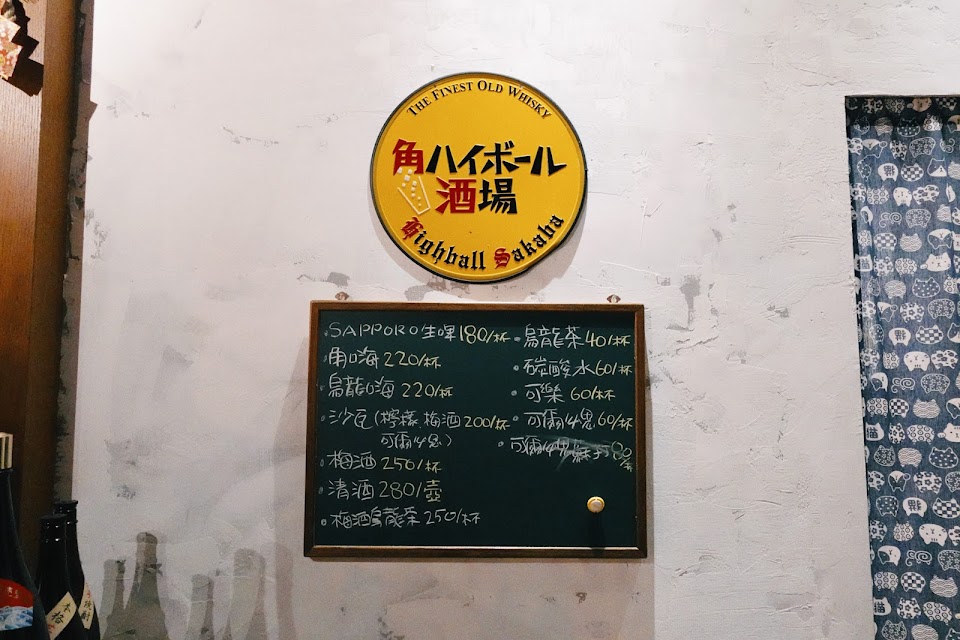 THE FINEST OLD WHISKY
角ハイボール
酒場
Highball Sakaba
SAPPORO生啤180/杯
角嗨220/杯
烏龍嗨220/杯
沙瓦(檸檬 梅酒 200/杯
可爾必思)
梅酒250/杯
清酒280/壺
梅酒烏龍茶250/杯
烏龍茶40/杯
碳酸水60/杯
可樂60/杯
可爾必思60/杯
可爾必思
本格